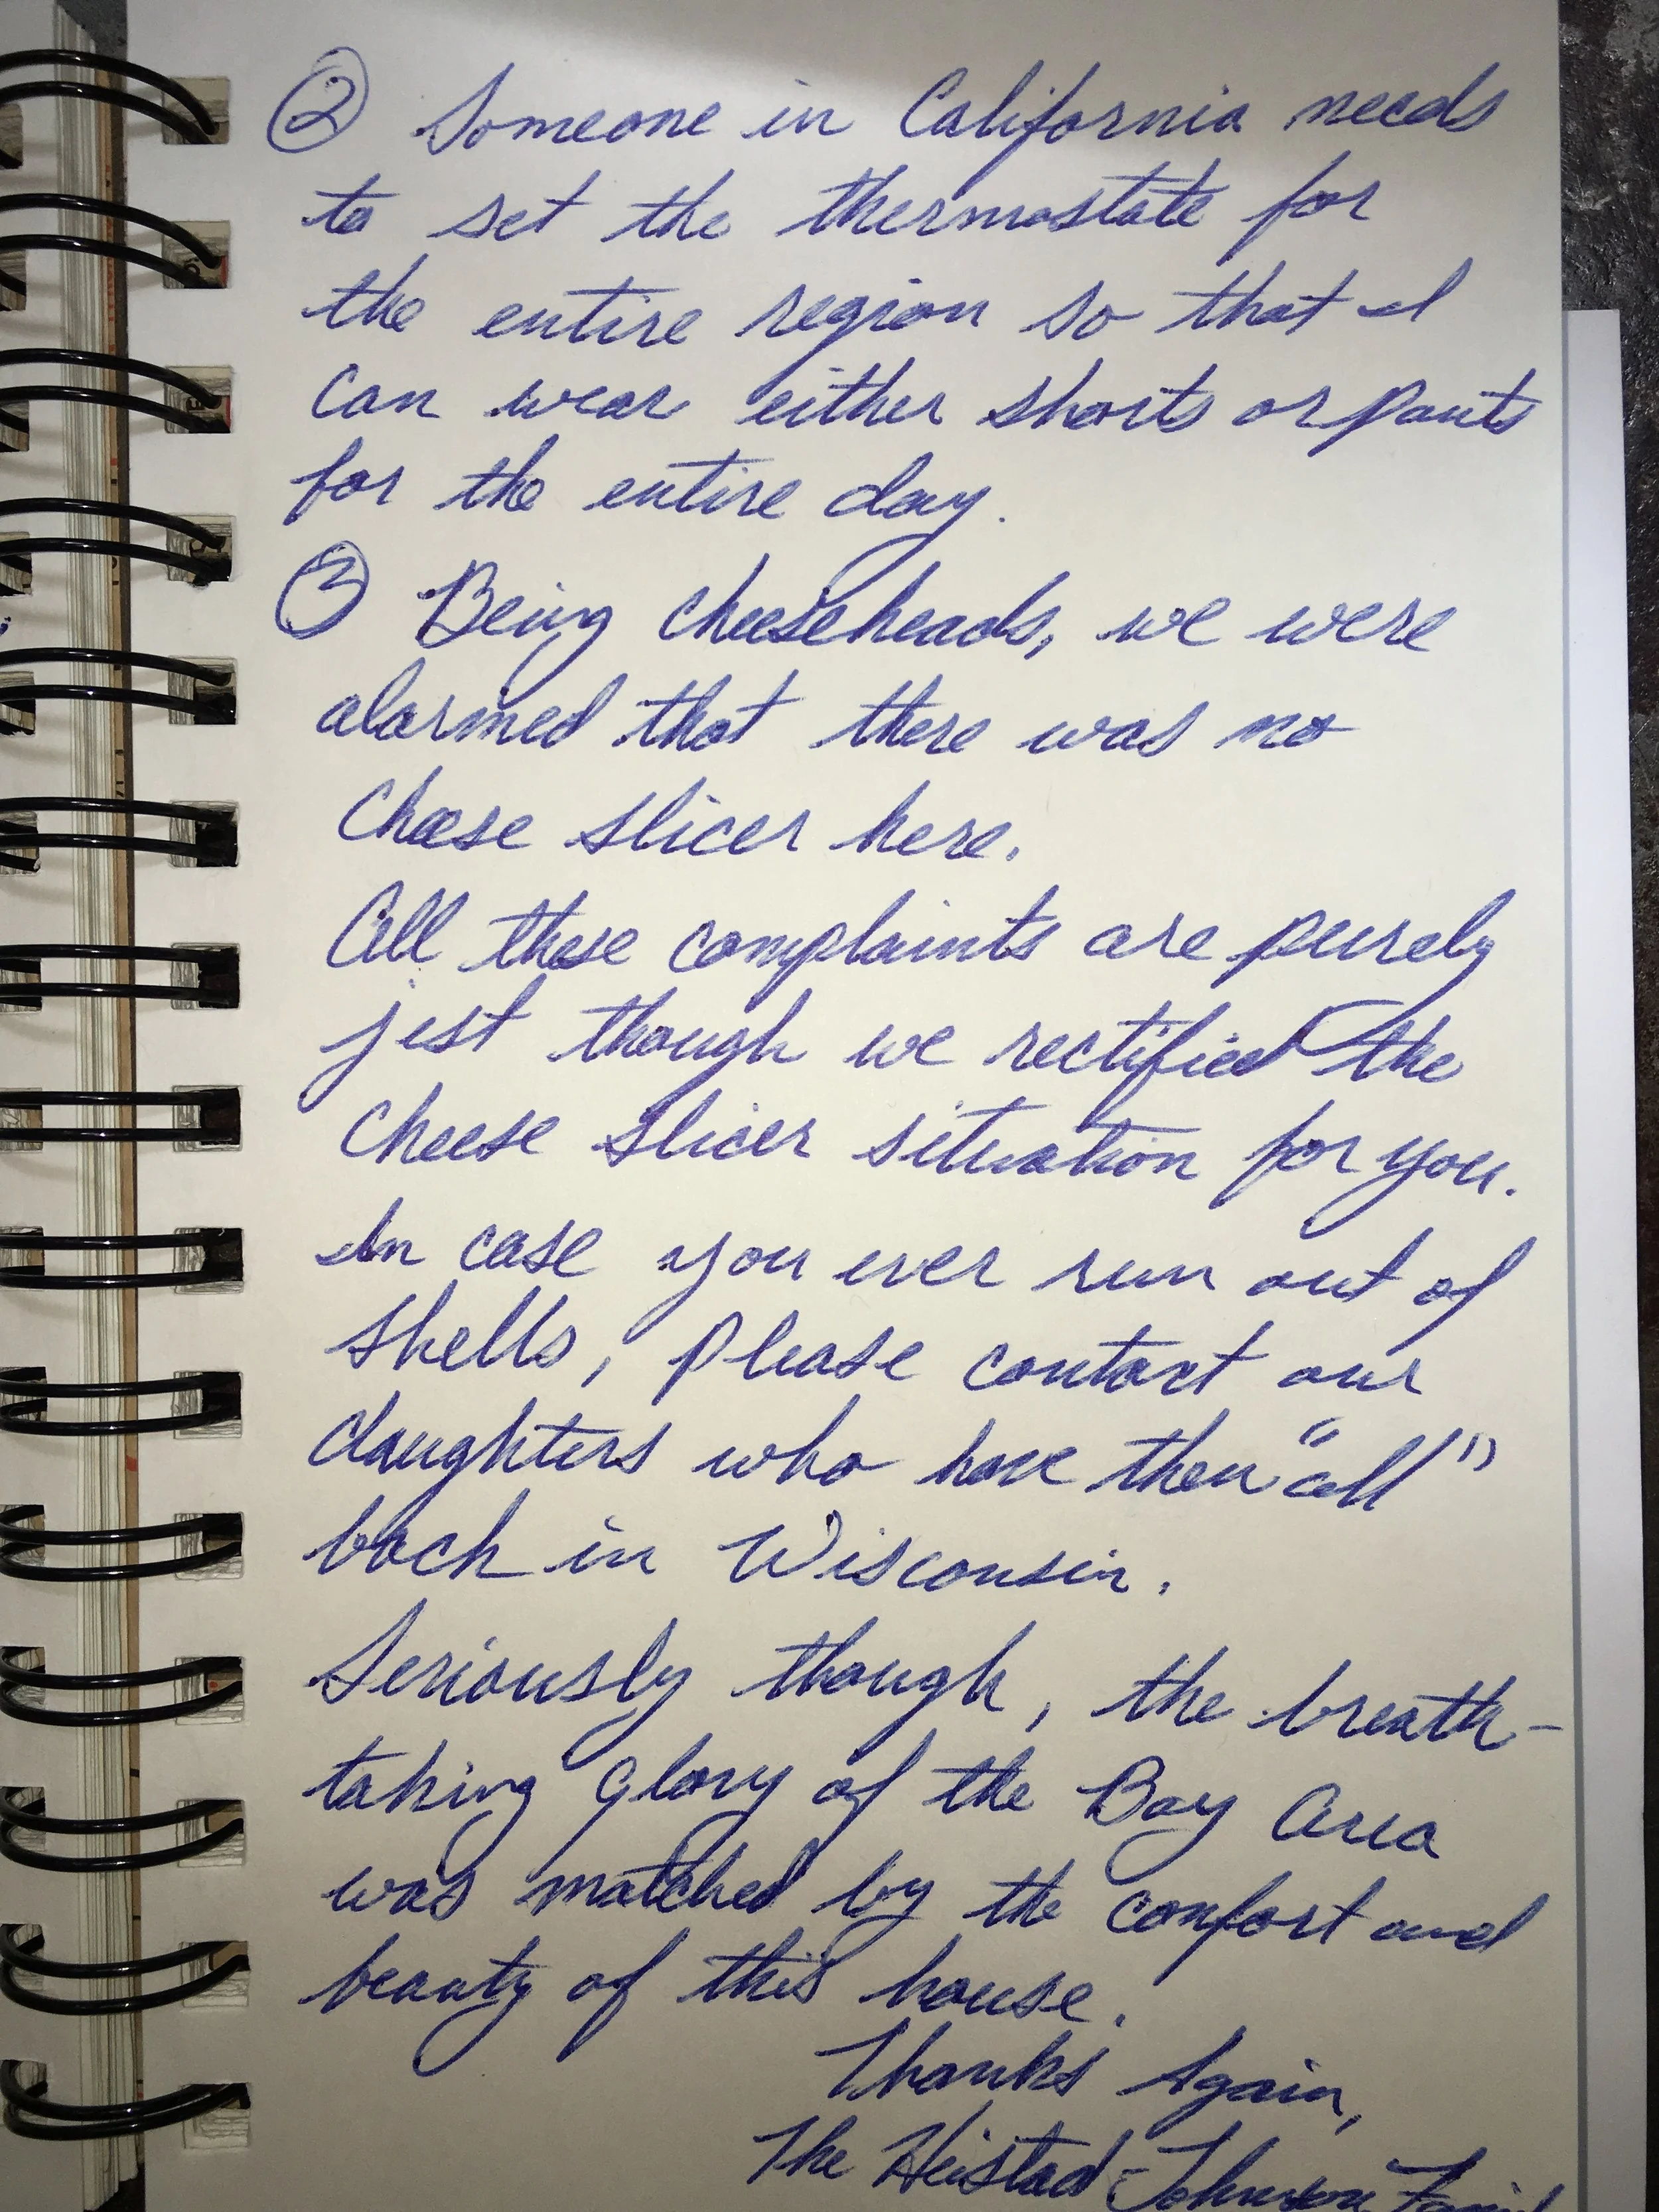 ② Someone in California needs
to set the thermostate for
the entire region so that I
can wear either shorts or pants
for the entire day.
③ Being cheeseheads, we were
alarmed that there was no
Cheese slicer here.
All these complaints are purely
jest though we rectified the
Cheese slicer situation for you.
In case you ever run out of
shells, please contact our
daughters who have then "all"
back in Wisconsin.
Seriously though, the breath-
taking glory of the Bay Area
was matched by the comfort and
beauty of this house.
Thanks Again,
The Heistad-Johnson